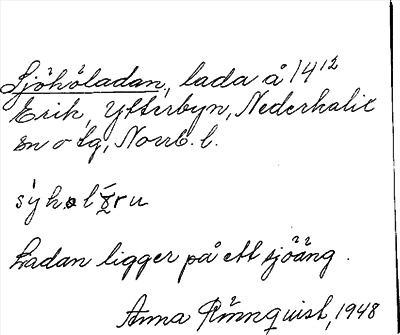 Sjöhöladan, lada å 14¹²
Erik, Ytterbyn, Nederkalix
sn o tg, Norrb. l.
Ladan ligger på ett sjöäng.
Anna Rönnquist, 1948